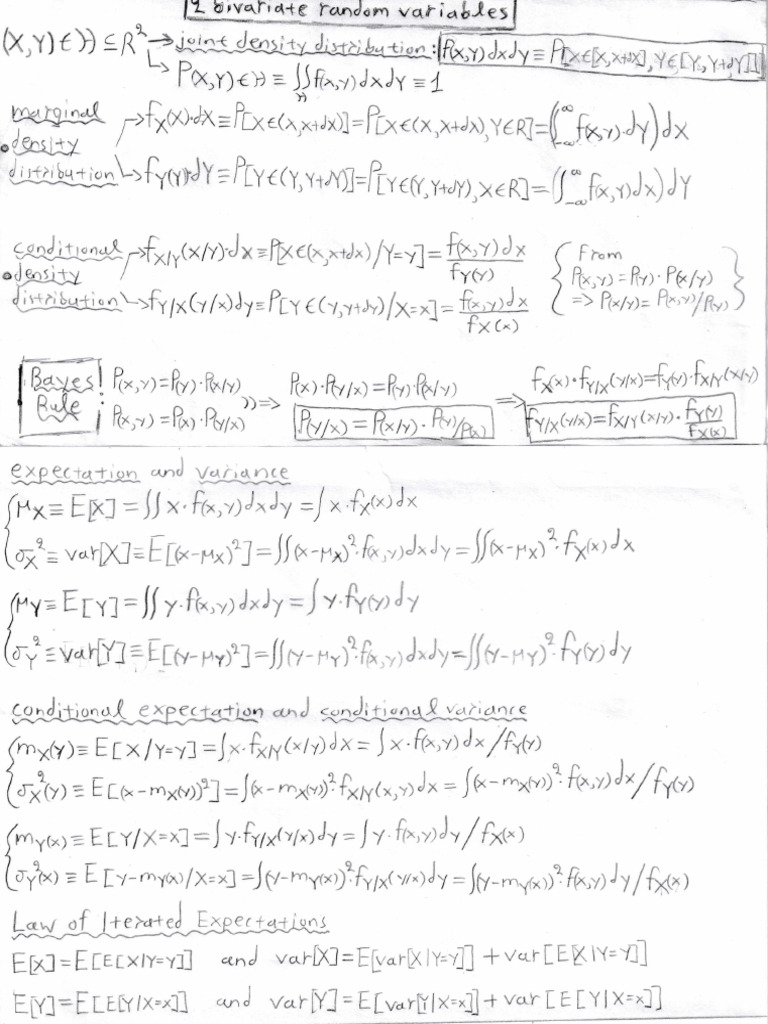 2 bivariate random variables
(X,Y)∈𝒴⊆R² → joint density distribution: f(x,y)dxdy≡P[X∈[X,X+dX],Y∈[Y,Y+dY]]
↳ P(X,Y)∈𝒴≡∬f(x,y)dxdy≡1
marginal density distribution
→f_X(x)·dX≡P[X∈(X,X+dX)]=P[X∈(X,X+dX),Y∈R]=(∫_{-∞}^{∞}f(x,y)·dy)dX
↳f_Y(Y)·dY≡P[Y∈(Y,Y+dY)]=P[Y∈(Y,Y+dY),X∈R]=(∫_{-∞}^{∞}f(x,y)dx)dY
conditional density distribution
→f_{X/Y}(X/Y)·dx≡P[X∈(x,x+dx)/Y=y]=f(x,y)dx/f_Y(y)
↳f_{Y/X}(Y/x)dy≡P[Y∈(y,y+dy)/X=x]=f(x,y)dx/f_X(x)
{From
P(x,y)=P(y)·P(x/y)
=>P(x/y)=P(x,y)/P(y)}
Bayes Rule:
P(x,y)=P(y)·P(x/y)
P(x,y)=P(x)·P(y/x)
=> P(x)·P(y/x)=P(y)·P(x/y)
P(y/x)=P(x/y)·P(y)/P(x)
=> f_X(x)·f_{Y/X}(y/x)=f_Y(y)·f_{X/Y}(x/y)
f_{Y/X}(y/x)=f_{X/Y}(x/y)·f_Y(y)/f_X(x)
expectation and variance
μ_X≡E[X]=∬x·f(x,y)dxdy=∫x·f_X(x)dx
σ_X²≡var[X]≡E[(x-μ_X)²]=∬(x-μ_X)²·f(x,y)dxdy=∬(x-μ_X)²·f_X(x)dx
μ_Y≡E[Y]=∬y·f(x,y)dxdy=∫y·f_Y(y)dy
σ_Y²≡var[Y]≡E[(y-μ_Y)²]=∬(y-μ_Y)²·f(x,y)dxdy=∬(y-μ_Y)²·f_Y(y)dy
conditional expectation and conditional variance
m_X(y)≡E[X/Y=y]=∫x·f_{X/Y}(x/y)dx=∫x·f(x,y)dx/f_Y(y)
σ_X²(y)≡E[(x-m_X(y))²]=∫(x-m_X(y))²·f_{X/Y}(x,y)dx=∫(x-m_X(y))²·f(x,y)dx/f_Y(y)
m_Y(x)≡E[Y/X=x]=∫y·f_{Y/X}(y/x)dy=∫y·f(x,y)dy/f_X(x)
σ_Y²(x)≡E[y-m_Y(x)/X=x]=∫(y-m_Y(x))²·f_{Y/X}(y/x)dy=∫(y-m_Y(x))²·f(x,y)dy/f_X(x)
Law of Iterated Expectations
E[X]=E[E[X|Y=Y]] and var[X]=E[var[X|Y=y]]+var[E[X|Y=y]]
E[Y]=E[E[Y|X=x]] and var[Y]=E[var[Y|X=x]]+var[E[Y|X=x]]